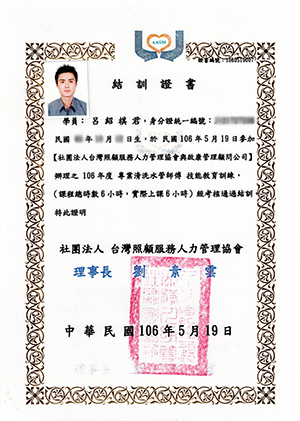 AASM
證書編號：1060519007
結訓證書
學員：呂紹祺君，身分證統一編號：
民國 年 月 日生，於 民國106年5月19日參加
【社團法人台灣照顧服務人力管理協會與啟康管理顧問公司】
辦理之 106年度 專業清洗水管師傅 技能教育訓練，
（課程總時數6小時，實際上課6小時）經考核通過結訓
特此證明
社團法人 台灣照顧服務人力管理協會
理事長 劉景雲
中華民國106年5月19日